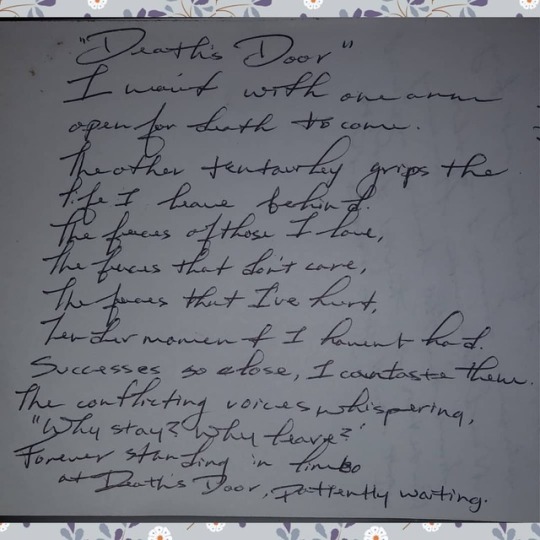 "Death's Door"
I wait with one arm
open for death to come.
The other tentatively grips the
life I leave behind.
The faces of those I love,
The faces that don't care,
The faces that I've hurt,
Tender moments I haven't had.
Successes so close, I can taste them.
The conflicting voices whispering,
"Why stay? Why leave?"
Forever standing in limbo
at Death's Door, patiently waiting.